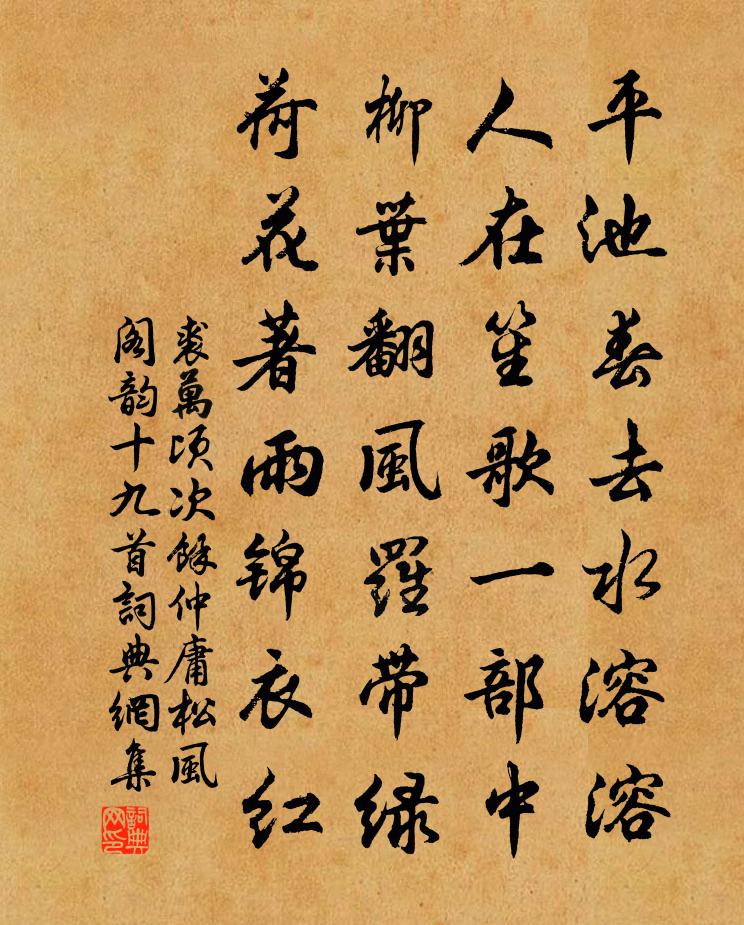 平池春去水溶溶
人在笙歌一部中
柳葉翻風羅帶綠
荷花著雨锦衣红
裘萬頃次餘仲庸松風
阁韵十九首詞典網集
詞典
网印